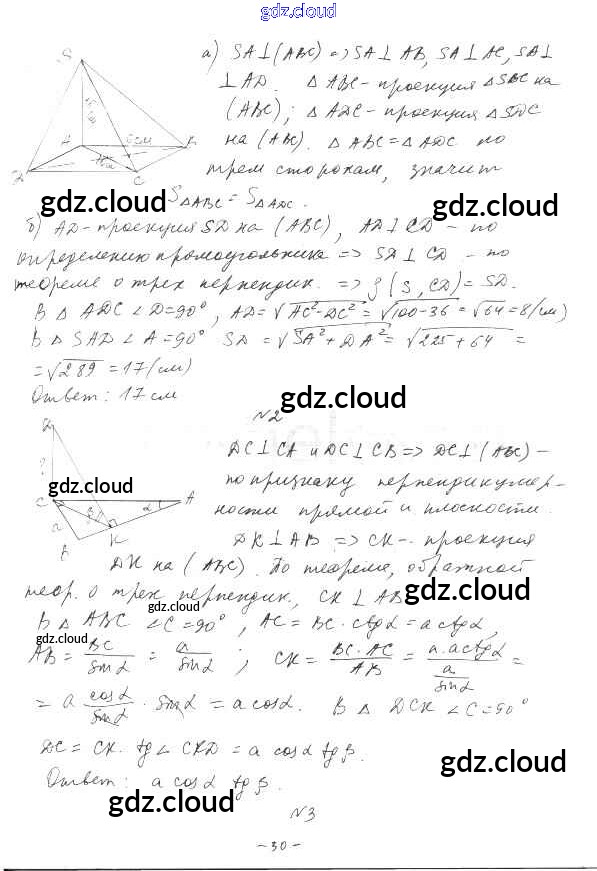 gdz.cloud
S
15 см
A
6см
B
10см
D
C
а) SA⊥(ABC) => SA⊥AB, SA⊥AC, SA⊥
⊥AD. △ABC - проекция △SBC на
(ABC); △ADC - проекция △SDC
на (ABC). △ABC = △ADC по
трем сторонам, значит
S△ABC = S△ADC.
gdz.cloud
gdz.cloud
б) AD - проекция SD на (ABC), AD⊥CD - по
определению прямоугольника => SD⊥CD - по
теореме о трех перпендик. => ρ(S, CD) = SD.
В △ADC ∠D=90°, AD=√AC²-DC² = √100-36 = √64 = 8(см)
В △SAD ∠A=90° SD=√SA²+DA² = √225+64 =
=√289 = 17(см)
Ответ: 17см
gdz.cloud
N2
D
?
C
A
a
β
α
B
K
gdz.cloud
DC⊥CA и DC⊥CB => DC⊥(ABC) -
по признаку перпендикуляр-
ности прямой и плоскости.
gdz.cloud
DK⊥AB => CK - проекция
DK на (ABC). По теореме, обратной
теор. о трех перпендик., CK⊥AB
gdz.cloud
gdz.cloud
В △ABC ∠C=90°, AC = BC·ctgα = a ctgα,
gdz.cloud
AB = BC/sinα = a/sinα; CK = BC·AC/AB = a·a ctgα / a/sinα =
= a cosα/sinα · sinα = a cosα. В △DCK ∠C=90°
DC = CK·tg∠CKD = a cosα tgβ.
gdz.cloud
Ответ: a cosα tgβ.
gdz.cloud
N3
-30-